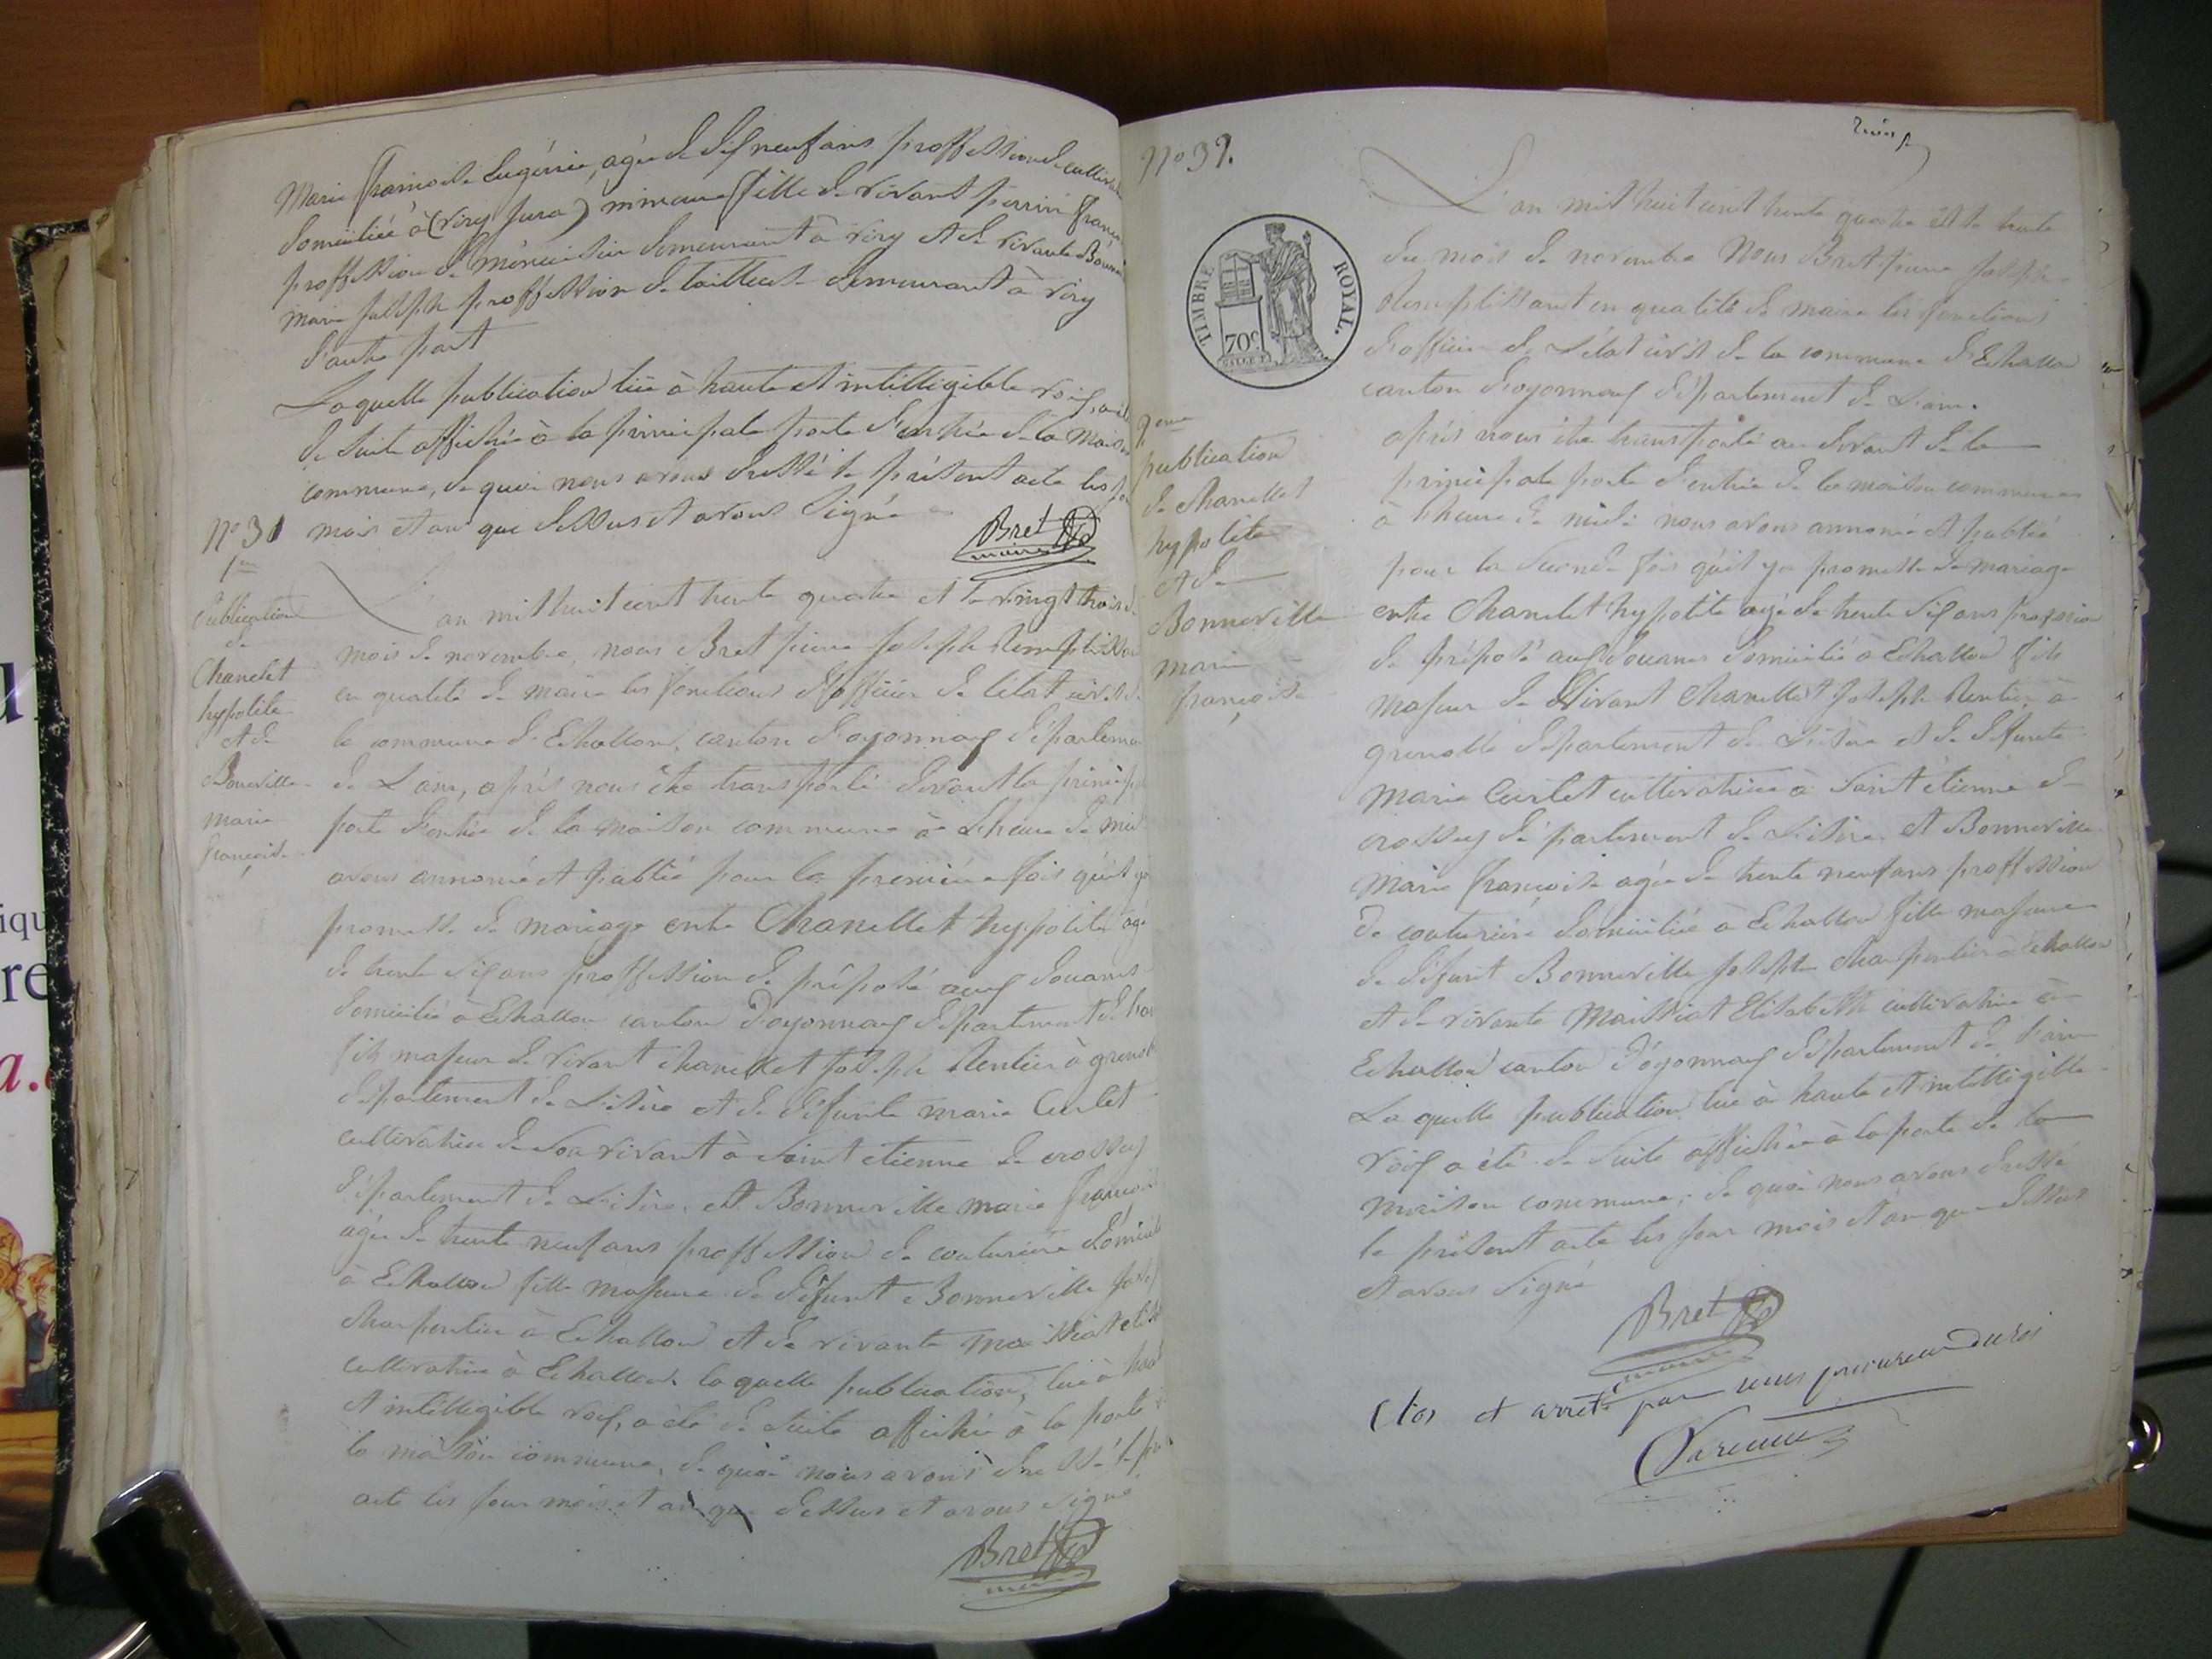 Marie françoise Eugénie, agée de dix neuf ans proffession de
domiciliée à (viry jura) mineure fille de vivant perrin
proffession de ménuisier demeurant à viry et de vivante
marie josèph proffession de tailleuse demeurant à viry
d'autre part
Laquelle publication lue à haute et intelligible voix,
de suite affichée à la principale porte d'entrée de la
commune, de quoi nous avons dressé le présent acte les
mois et an que dessus et avons signé
Bret
maire
N° 31
1ere
publication
de
Chanelet
hypolite
et de
Bonneville
marie
françoise
L'an mil huit cent trente quatre et le vingt trois
mois de novembre, nous Bret pierre joseph
en qualité de maire les fonctions d'officier de l'état civil
la commune d'Echallon, canton d'oyonnax
de L'ain, après nous être transporté devant la
porte d'entrée de la maison commune à L'heure de
avons annoncé et publié pour la première fois qu'il
promesse de mariage entre Chanellet hyppolite
de trente six ans proffession de préposé aux douanes
domicilié à Echallon canton d'oyonnax département
fils majeur de vivant chanellet joseph Rentier à
département de L'isère et de défunte marie Curlet
cultivatrice de son vivant à saint etienne de crossey
département de L'isère, et Bonneville marie
agée de trente neuf ans proffession de couturière
à Echallon fille majeure de défunt Bonneville
charpentier à Echallon et de vivante Maissiat
cultivatrice à Echallon, laquelle publication, lue à
et intelligible voix, a été de suite affichée à la porte
la maison commune, de quoi nous avons dressé
acte les jour mois et an que dessus et avons signé
Bret
maire
N° 32.
TIMBRE ROYAL.
70c
2eme
publication
de chanellet
hypolite
et de
Bonneville
marie
françoise
L'an mil huit cent trente quatre et le trente
du mois de novembre Nous Bret pierre joseph
Remplissant en qualité de maire les fonctions
d'officier de L'état civil de la commune d'Echallon
canton d'oyonnax département de L'ain.
après nous être transporté au devant de la
principale porte d'entrée de la maison commune
à l'heure de midi nous avons annoncé et publié
pour la seconde fois qu'il y a promesse de mariage
entre Chanelet hypolite agé de trente six ans
de préposé aux douanes domicilié à Echallon fils
majeur de vivant Chanellet joseph Rentier à
grenoble département de L'isère et de défunte
Marie Curlet cultivatrice à Saint étienne de
crossey département de L'isère, et Bonneville
Marie françoise agée de trente neuf ans proffession
de couturière domiciliée à Echallon fille majeure
de défunt Bonneville joseph charpentier à Echallon
et de vivante Maissiat Elisabeth cultivatrice à
Echallon canton d'oyonnax département de l'ain
Laquelle publication, lue à haute et intelligible
voix a été de suite affichée à la porte de la
maison commune, de quoi nous avons dressé
le présent acte les jour mois et an que dessus
et avons signé
Bret
maire
Clos et arrêté par nous procureur du roi